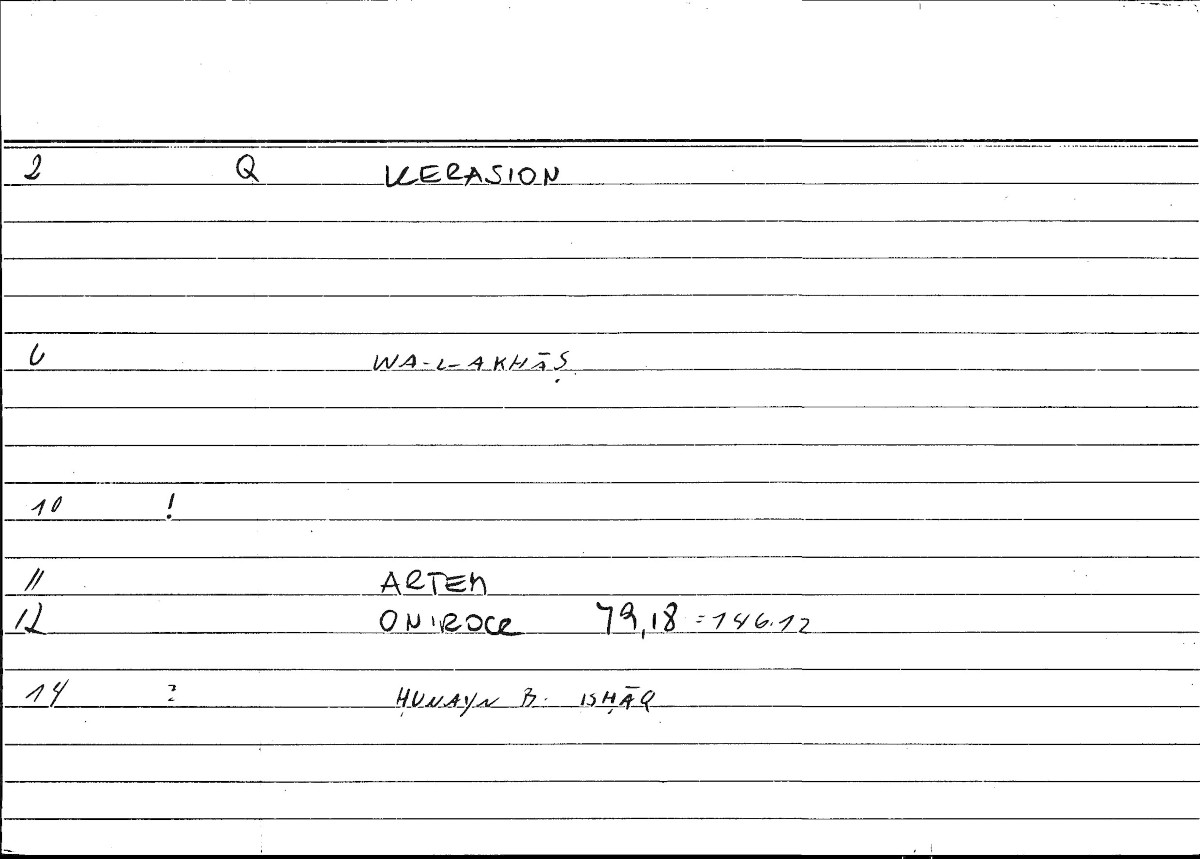 2 Q KERASION
6 WA-L-AKHĀṢ
10 !
11 ARTEM
12 ONIROCR 79,18 = 146.12
14 ? ḤUNAYN B. ISḤĀQ